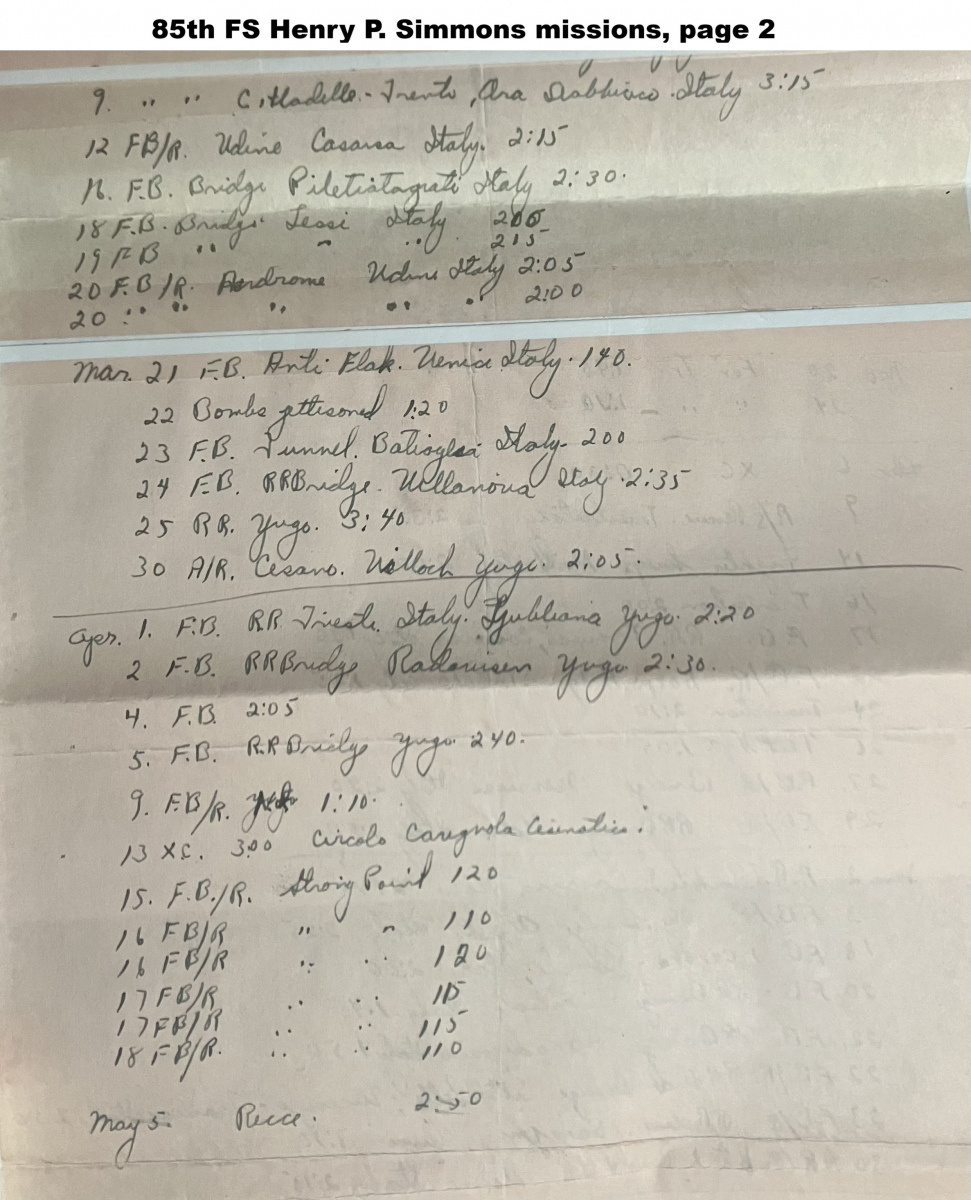 85th FS Henry P. Simmons missions, page 2
9. " " Cittadelle - Trento, Italy 3:15
12 FB/R. Udine Casarsa Italy. 2:15
16. F.B. Bridge Italy 2:30.
18 F.B. Bridge. Jessi Italy 200
19 FB " " " 215
20 F.B/R. Aerdrome Udine Italy 2:05
20 " " " " " 2:00
Mar. 21 F.B. Anti Flak. Venice Italy. 140.
22 Bombs jettisoned 1:20
23 F.B. Tunnel. Italy - 200
24 F.B. RRBridge. Villanova Italy. 2:35
25 RR. Yugo. 3:40
30 A/R. Cesano. Yugo. 2:05.
Apr. 1. F.B. RR Trieste. Italy. Ljubliana Yugo. 2:20
2 F.B. RRBridge Yugo 2:30.
4. F.B. 2:05
5. F.B. R.R Bridge Yugo. 240.
9. F.B/R. 1:10.
13 XC. 300 Circolo
15. F.B./R. Strong Point 120
16 FB/R " " 110
16 FB/R " " 120
17 FB/R " " 115
17 FB/R " " 115
18 FB/R. " " 110
May 5. Recce. 2:50